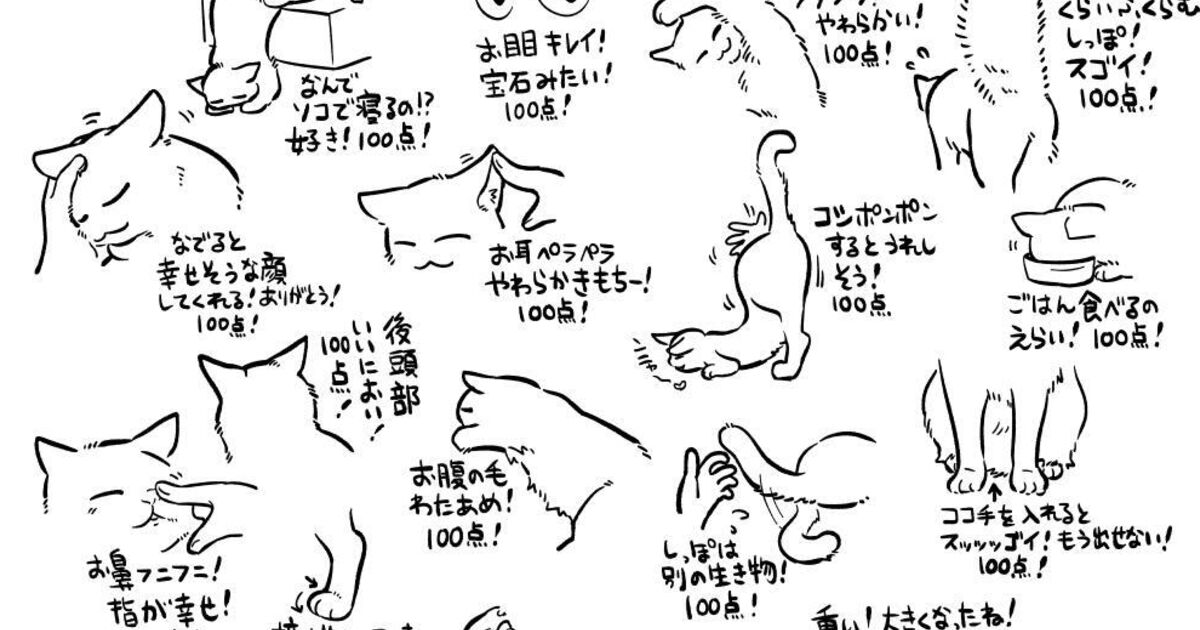 なんで
ソコで寝るの!?
好き!100点!
お目目キレイ!
宝石みたい!
100点!
やわらかい!
100点!
くらいふくらむ
しっぽ!
スゴイ!
100点!
なでると
幸せそうな顔
してくれる!ありがとう!
100点!
お耳ペラペラ
やわらかきもちー!
100点!
コシポンポン
するとうれし
そう!
100点
ごはん食べるの
えらい!100点!
後頭部
いいにおい!
100点!
お鼻フニフニ!
指が幸せ!
お腹の毛
わたあめ!
100点!
しっぽは
別の生き物!
100点!
ココ手を入れると
スッッッゴイ!もう出せない!
100点!
重い!大きくなったね!